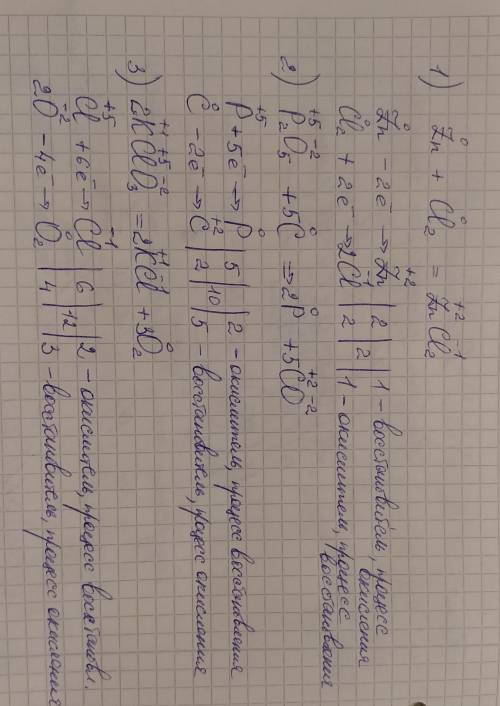 1) Zn⁰ + Cl₂⁰ = Zn⁺²Cl₂⁻¹
Zn⁰ - 2e⁻ → Zn⁺² | 2 | 1 - восстановитель, процесс окисления
Cl₂⁰ + 2e⁻ → 2Cl⁻¹ | 2 | 2 | 1 - окислитель, процесс восстановления
2) P₂⁺⁵O₅⁻² + 5C⁰ → 2P⁰ + 5C⁺²O⁻²
P⁺⁵ + 5e⁻ → P⁰ | 5 | 2 - окислитель, процесс восстановления
C⁰ - 2e⁻ → C⁺² | 2 | 10 | 5 - восстановитель, процес окисления
3) 2K⁺¹Cl⁺⁵O₃⁻² = 2K⁺¹Cl⁻¹ + 3O₂⁰
Cl⁺⁵ + 6e⁻ → Cl⁻¹ | 6 | 2 - окислитель, процесс восстановл.
2O⁻² - 4e⁻ → O₂⁰ | 4 | 12 | 3 - восстановитель, процесс окисления